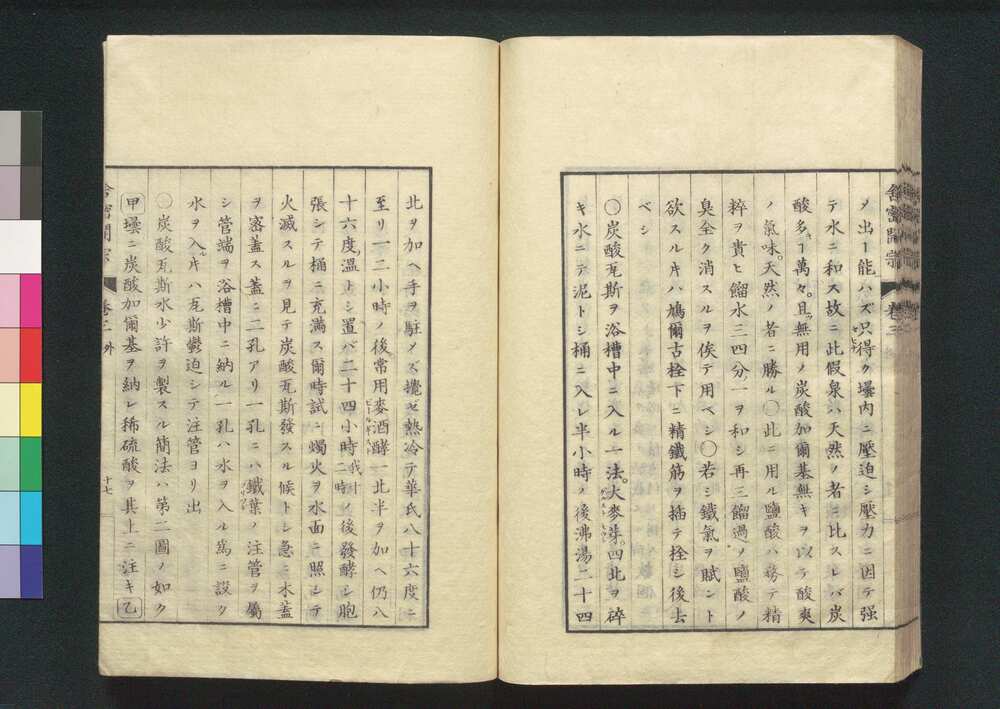 メ出ー能ハズ只得ク壜内ニ壓迫シ壓力ニ因テ强
テ水ニ和ス故ニ此假泉ハ天然ノ者ニ比スレバ炭
酸多キー萬々且ツ無用ノ炭酸加爾基無キヲ以テ酸爽
ノ氣味天然ノ者ニ勝ル〇此ニ用ル鹽酸ハ務テ精
粹ヲ貴ヒ餾水三四分一ヲ和シ再三餾過ノ鹽酸ノ
臭全ク消スルヲ俟テ用ベシ〇若シ鐵氣ヲ賦ント
欲スル片ハ鳩爾古栓下ニ精鐵筋ヲ插テ栓シ後去
ベシ
〇炭酸瓦斯ヲ浴槽中ニ入ル一法大麥芽四北ヲ碎
キ水ニテ泥トシ桶ニ入レ半小時ノ後沸湯二十四
舍密開宗 卷三
北ヲ加ヘ手ヲ駐メズ攪ゼ熱冷テ華氏八十六度ニ
至リ一二小時ノ後常用麥酒酵一北半ヲ加ヘ仍八
十六度溫トシ置バ二十四小時我十二時ノ後發酵シ胞
張シテ桶ニ充滿ス爾時試ニ燭火ヲ水面ニ照シテ
火滅スルヲ見テ炭酸瓦斯發スル候トシ急ニ木蓋
ヲ密蓋ス蓋ニ二孔アリ一孔ニハ鐵葉ノ注管ヲ屬
シ管端ヲ浴槽中ニ納ル一孔ハ水ヲ入ル爲ニ設ク
水ヲ入ルヽ片ハ瓦斯鬱迫シテ注管ヨリ出
〇炭酸瓦斯水少許ヲ製スル簡法ハ第二圖ノ如ク
甲壜ニ炭酸加爾基ヲ納レ稀硫酸ヲ其上ニ注キ乙
舍密開宗 卷三 外 十七